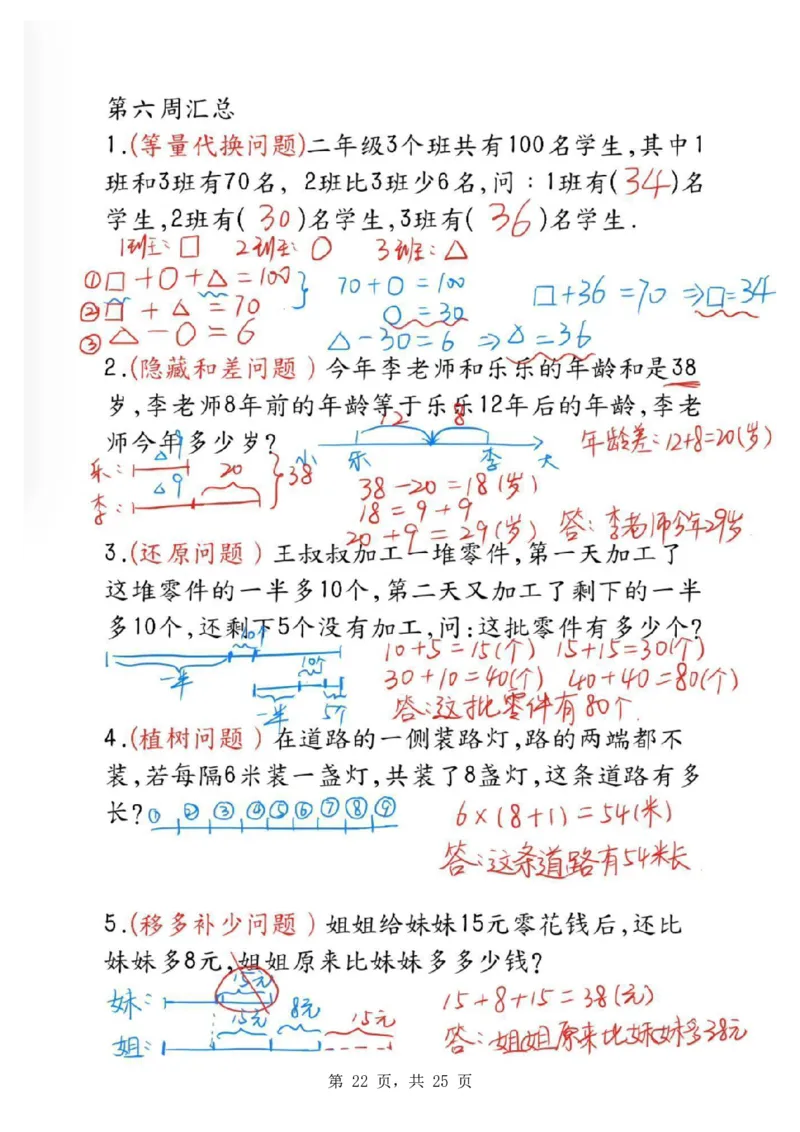 第六周汇总
1.(等量代换问题)二年级3个班共有100名学生,其中1
班和3班有70名, 2班比3班少6名,问:1班有(34)名
学生,2班有(30)名学生,3班有(36)名学生.
1班:□ 2班:○ 3班:△
①□+○+△=100 70+○=100 □+36=70⇒□=34
②□+△=70 ○=30
③△-○=6 △-30=6⇒△=36
2.(隐藏和差问题)今年李老师和乐乐的年龄和是38
岁,李老师8年前的年龄等于乐乐12年后的年龄,李老
12 8
师今年多少岁? 年龄差:12+8=20(岁)
小 乐 李 大
乐: △9 20 38
李: △9
38-20=18(岁)
18=9+9
20+9=29(岁) 答:李老师今年29岁
3.(还原问题)王叔叔加工一堆零件,第一天加工了
这堆零件的一半多10个,第二天又加工了剩下的一半
多10个,还剩下5个没有加工,问:这批零件有多少个?
10个 10+5=15(个) 15+15=30(个)
一半 10个 30+10=40(个) 40+40=80(个)
一半 5个 答:这批零件有80个.
4.(植树问题)在道路的一侧装路灯,路的两端都不
装,若每隔6米装一盏灯,共装了8盏灯,这条道路有多
长? ①②③④⑤⑥⑦⑧⑨ 6×(8+1)=54(米)
答:这条道路有54米长
5.(移多补少问题)姐姐给妹妹15元零花钱后,还比
妹妹多8元,姐姐原来比妹妹多多少钱?
15元
妹: 15+8+15=38(元)
15元 8元 15元
姐: 答:姐姐原来比妹妹多38元
第 22 页, 共 25 页